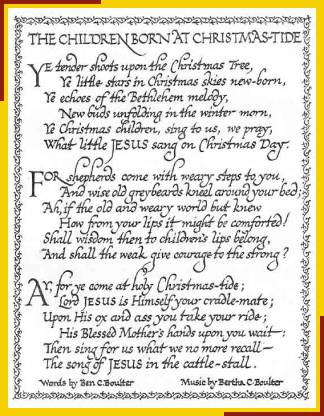 THE CHILDREN BORN AT CHRISTMAS-TIDE
YE tender shoots upon the Christmas Tree,
Ye little stars in Christmas skies new-born,
Ye echoes of the Bethlehem melody,
New buds unfolding in the winter morn,
Ye Christmas children, sing to us, we pray,
What little JESUS sang on Christmas Day.
FOR shepherds come with weary steps to you,
And wise old greybeards kneel around your bed;
Ah, if the old and weary world but knew
How from your lips it might be comforted!
Shall wisdom then to children's lips belong,
And shall the weak give courage to the strong?
AY, for ye come at holy Christmas-tide;
Lord JESUS is Himself your cradle-mate;
Upon His ox and ass you take your ride;
His Blessed Mother's hands upon you wait—:
Then sing for us what we no more recall—
The song of JESUS in the cattle-stall.
Words by Ben C. Boulter Music by Bertha C. Boulter